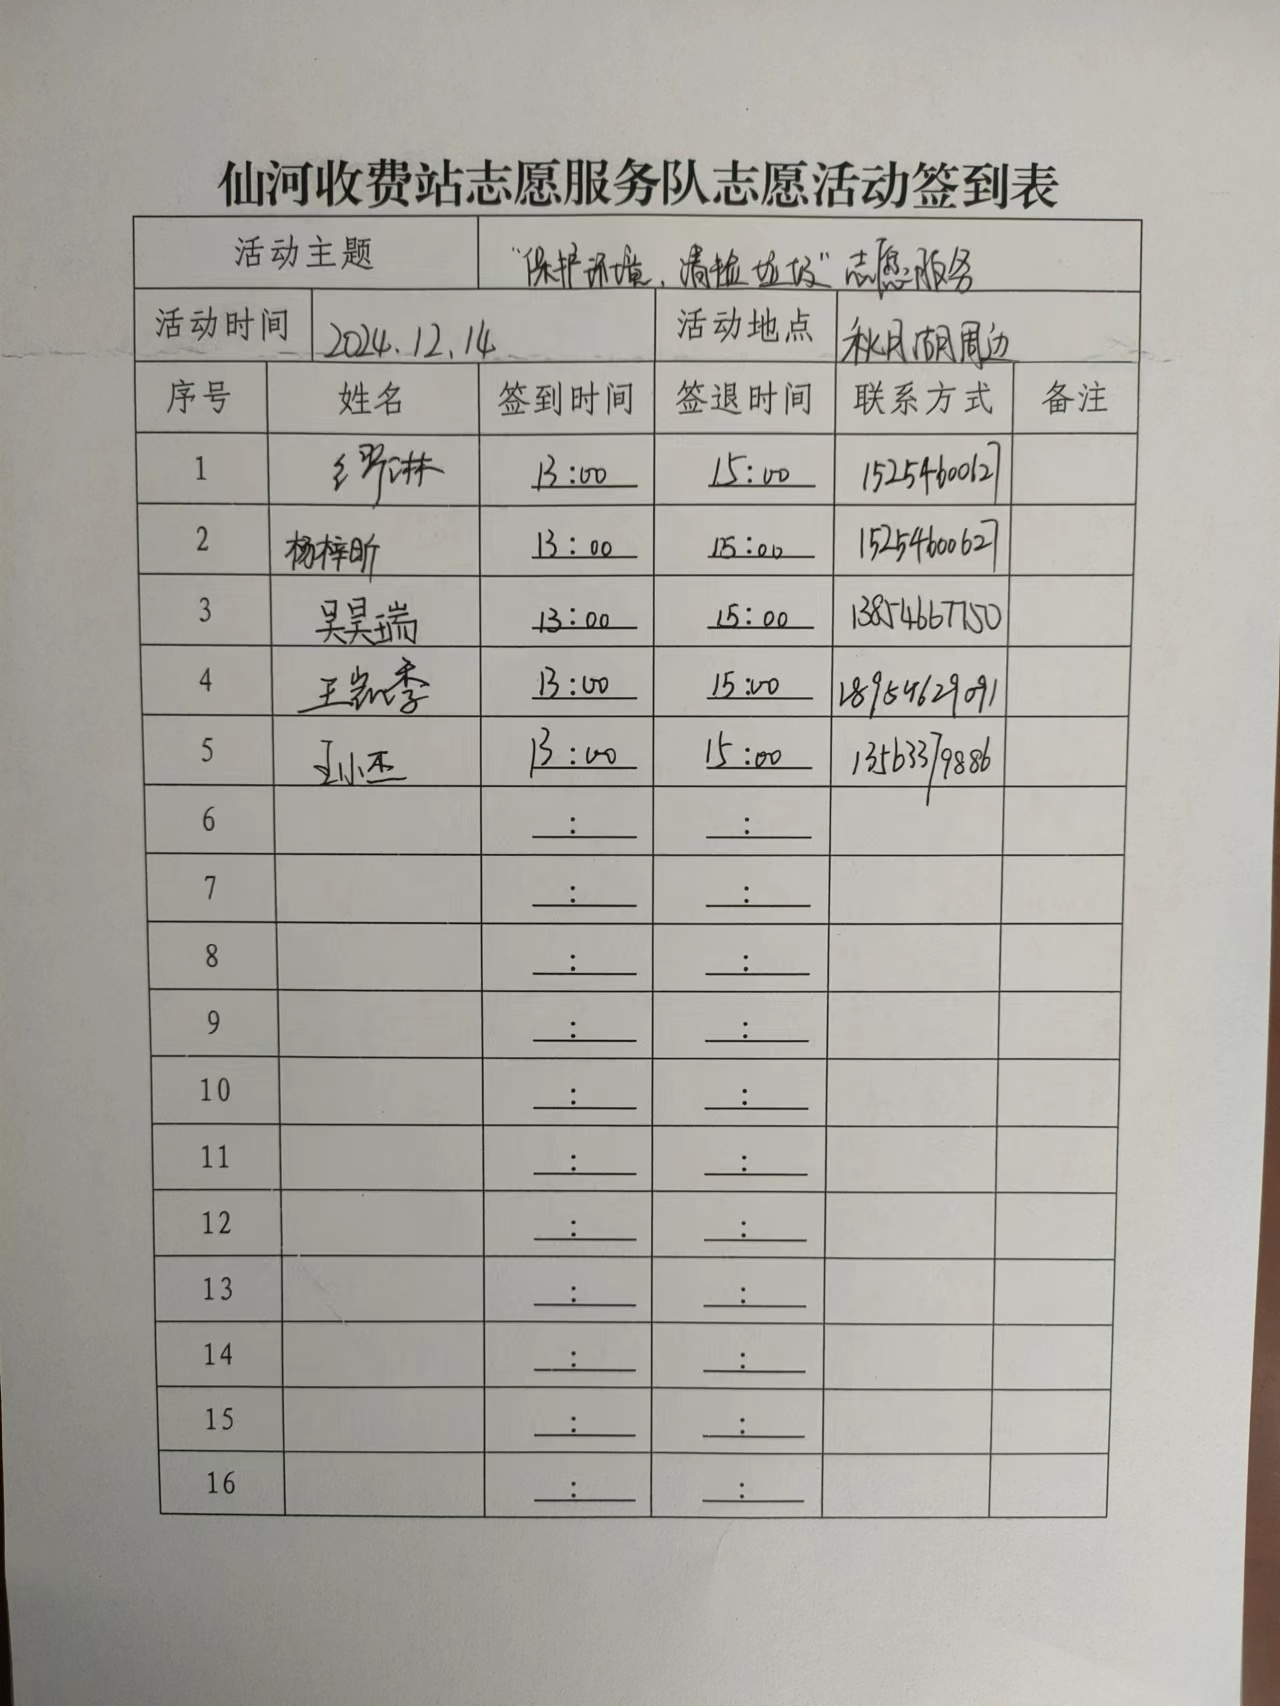 仙河收费站志愿服务队志愿活动签到表
活动主题 "保护环境，清捡垃圾"志愿服务
活动时间 2024.12.14 活动地点 秋月湖周边
序号 姓名 签到时间 签退时间 联系方式 备注
1 淋 13:00 15:00 15254600627
2 杨梓昕 13:00 15:00 15254600627
3 吴昊瑞 13:00 15:00 13854667750
4 王凯季 13:00 15:00 18954629091
5 王小杰 13:00 15:00 13563379886
6 : :
7 : :
8 : :
9 : :
10 : :
11 : :
12 : :
13 : :
14 : :
15 : :
16 : :